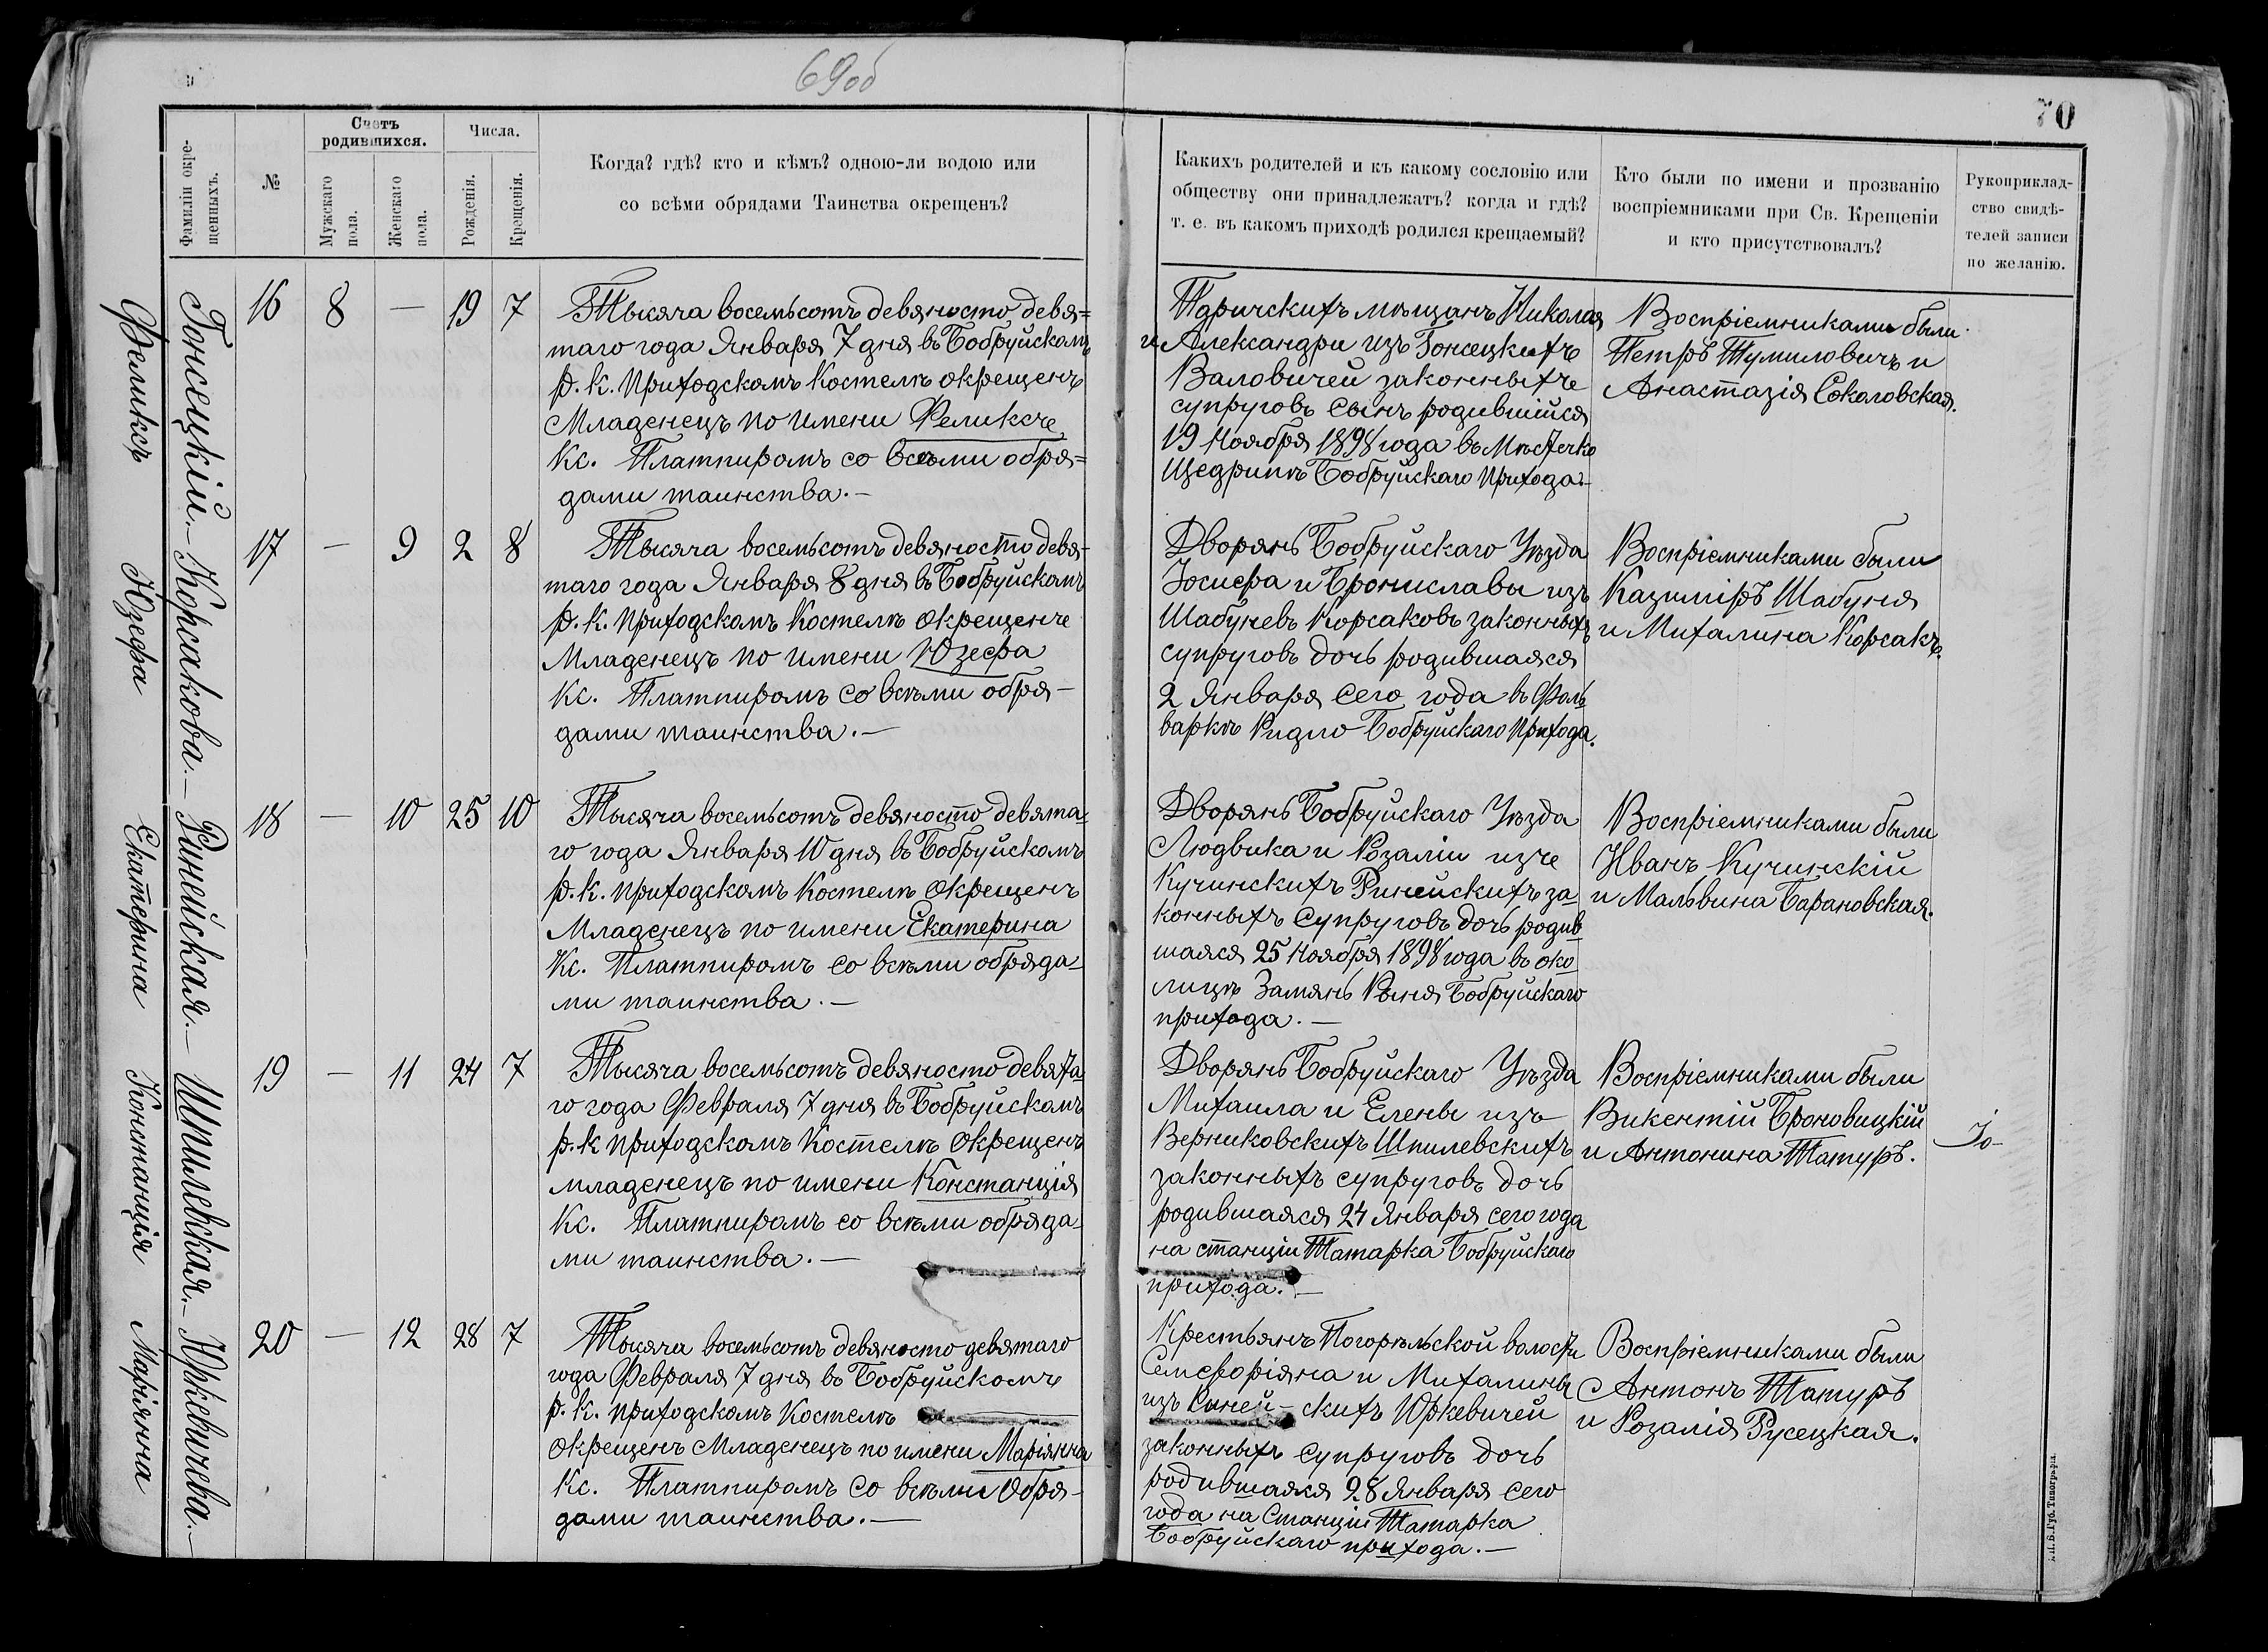 69об
70
Фамиліи окре-
щенныхъ.
№
Счетъ
родившихся.
Мужскаго
пола.
Женскаго
пола.
Числа.
Рожденія.
Крещенія.
Когда? гдѣ? кто и кѣмъ? одною-ли водою или
со всѣми обрядами Таинства окрещенъ?
Какихъ родителей и къ какому сословію или
обществу они принадлежатъ? когда и гдѣ?
т. е. въ какомъ приходѣ родился крещаемый?
Кто были по имени и прозванію
воспріемниками при Св. Крещеніи
и кто присутствовалъ?
Рукоприклад-
ство свидѣ-
телей записи
по желанію.
Гонсецкій.–
Феликсъ
16 8 — 19 7
Тысяча восемьсотъ девяносто девя=
таго года Января 7 дня въ Бобруйскомъ
р. к. Приходскомъ Костелѣ окрещенъ
Младенецъ по имени Феликсъ
Кс. Платпиромъ со всѣми обря=
дами таинства.—
Паричскихъ мѣщанъ Николая
и Александры изъ Гонсецкихъ
Валовичей законныхъ
супруговъ сынъ родившійся
19 Ноября 1898 года въ Мѣстечкѣ
Щедринѣ Бобруйскаго Прихода.–
Воспріемниками были
Петръ Тумиловичъ и
Анастазія Соколовская.
Корсакова.–
Юзефа
17 — 9 2 8
Тысяча восемьсотъ девяносто девя-
таго года Января 8 дня въ Бобруйскомъ
р. к. приходскомъ Костелѣ окрещенъ
Младенецъ по имени Юзефа
Кс. Платпиромъ со всѣми обря-
дами таинства.—
Дворянъ Бобруйскаго Уѣзда
Іосифа и Брониславы изъ
Шабуневъ Корсаковъ законныхъ
супруговъ дочь родившаяся
2 Января сего года въ Фоль
варкѣ Ридло Бобруйскаго Прихода.
Воспріемниками были
Казиміръ Шабуня
и Михалина Корсакъ.
Ринейская.–
Екатерина
18 — 10 25 10
Тысяча восемьсотъ девяносто девята-
го года Января 10 дня въ Бобруйскомъ
р. к. приходскомъ Костелѣ окрещенъ
Младенецъ по имени Екатерина
Кс. Платпиромъ со всѣми обряда-
ми таинства.—
Дворянъ Бобруйскаго Уѣзда
Людвика и Розаліи изъ
Кучинскихъ Ринейскихъ за-
конныхъ супруговъ дочь родив
шаяся 25 Ноября 1898 года въ око-
лицѣ Замянь Рыня Бобруйскаго
прихода.—
Воспріемниками были
Иванъ Кучинскій
и Мальвина Барановская.
Шпилевская.–
Констанція
19 — 11 24 7
Тысяча восемьсотъ девяносто девята-
го года Февраля 7 дня въ Бобруйскомъ
р. к. приходскомъ Костелѣ окрещенъ
младенецъ по имени Констанція
Кс. Платпиромъ со всѣми обряда-
ми таинства.—
Дворянъ Бобруйскаго Уѣзда
Михаила и Елены изъ
Верниковскихъ Шпилевскихъ
законныхъ супруговъ дочь
родившаяся 24 Января сего года
на станціи Татарка Бобруйскаго
прихода.—
Воспріемниками были
Викентій Броновицкій
и Антонина Татуръ.
Юркевичева.–
Маріянна
20 — 12 28 7
Тысяча восемьсотъ девяносто девятаго
года Февраля 7 дня въ Бобруйскомъ
р. к. приходскомъ Костелѣ
окрещенъ Младенецъ по имени Маріянна
Кс. Платпиромъ со всѣми обря-
дами таинства.—
Крестьянъ Погорѣльской волости
Семфоріяна и Михалины
изъ Синей-скихъ Юркевичей
законныхъ супруговъ дочь
родившаяся 28 Января сего
года на Станціи Татарка
Бобруйскаго прихода.—
Воспріемниками были
Антонъ Татуръ
и Розалія Русецкая.